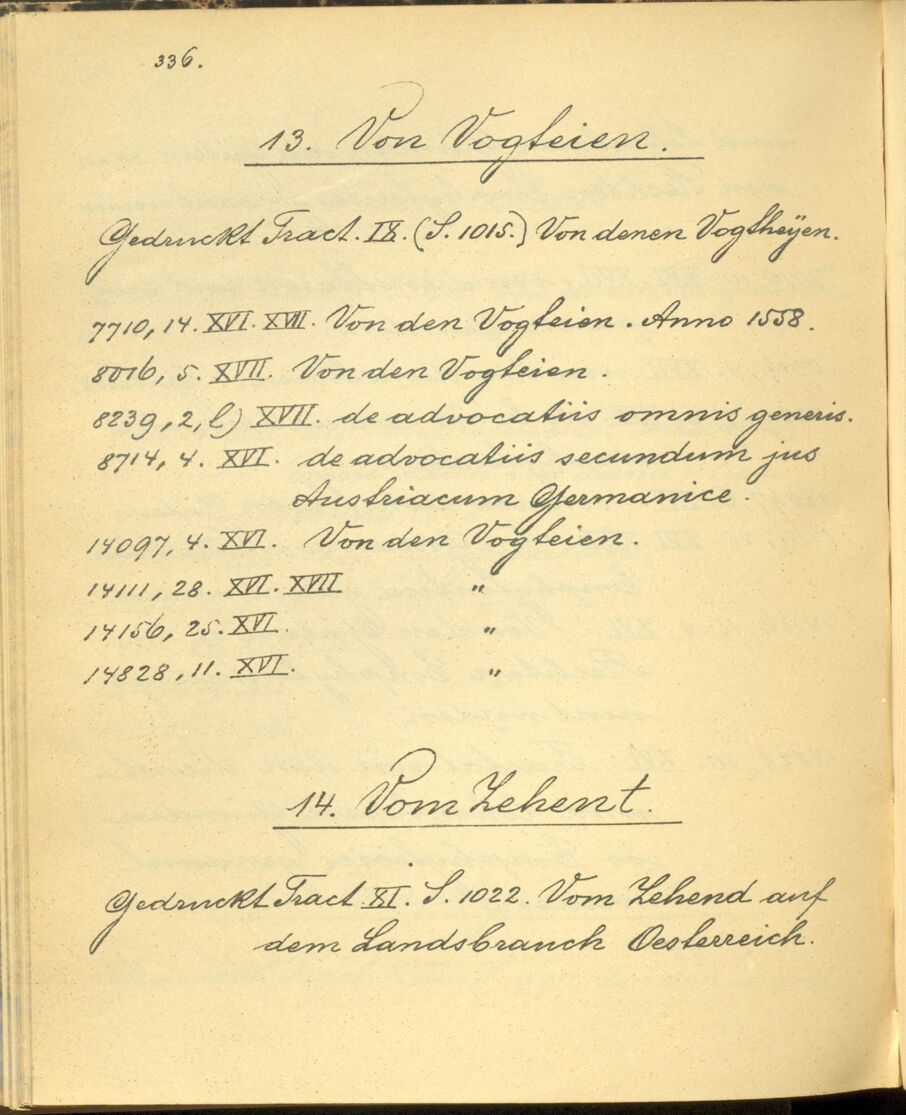 336.
13. Von Vogteien.
Gedruckt Tract. IX. (S. 1015.) Von denen Vogtheÿen.
7710, 14. XVI. XVII. Von den Vogteien. Anno 1558.
8016, 5. XVII. Von den Vogteien.
8239, 2, l) XVII. de advocatiis omnis generis.
8714, 4. XVI. de advocatiis secundum jus
Austriacum Germanice.
14097, 4. XVI. Von den Vogteien.
14111, 28. XVI. XVII "
14156, 25. XVI. "
14828, 11. XVI. "
14. Vom Zehent.
Gedruckt Tract. XI. S. 1022. Vom Zehend auf
dem Landsbrauch Oesterreich.